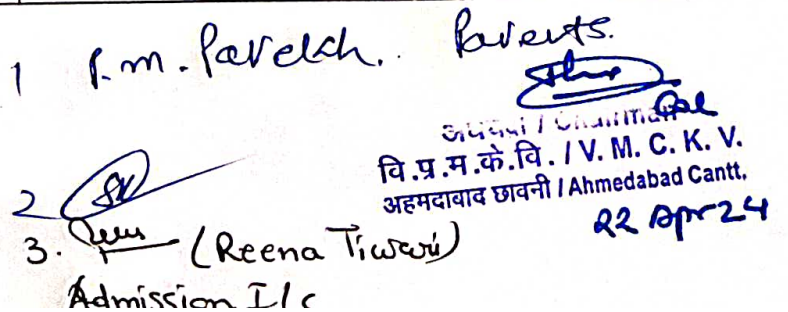 1 P.m. Parekh. Parents.
Col
अध्यक्ष / Chairman
वि.प्र.म.के.वि. / V. M. C. K. V.
अहमदाबाद छावनी / Ahmedabad Cantt.
22 Apr 24
2
3. (Reena Tiwari)
Admission I/c